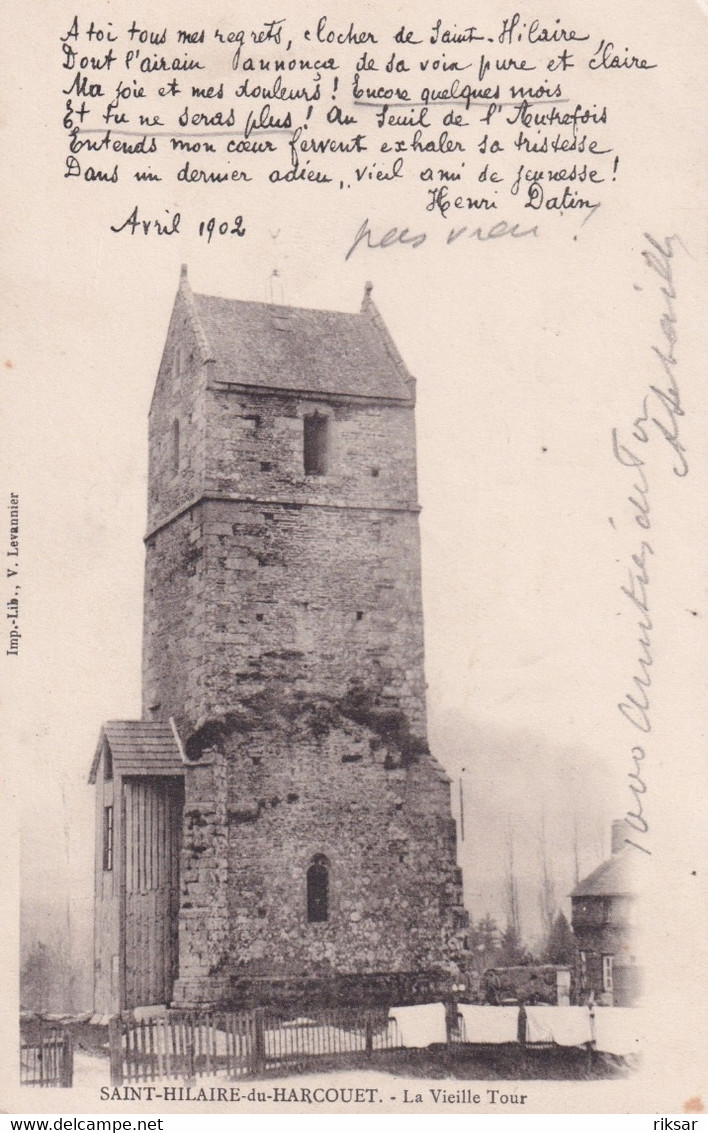 A toi tous mes regrets, clocher de Saint-Hilaire,
Dont l'airain annonça de sa voix pure et claire
Ma joie et mes douleurs ! Encore quelques mois
Et tu ne seras plus ! Au Seuil de l'Autrefois
Entends mon cœur fervent exhaler sa tristesse
Dans un dernier adieu, vieil ami de jeunesse !
Henri Datin
Avril 1902
pas vrai !
1000 amitiés de Ver
Imp.-Lib., V. Levannier
SAINT-HILAIRE-du-HARCOUET. - La Vieille Tour
riksar
delcampe.net